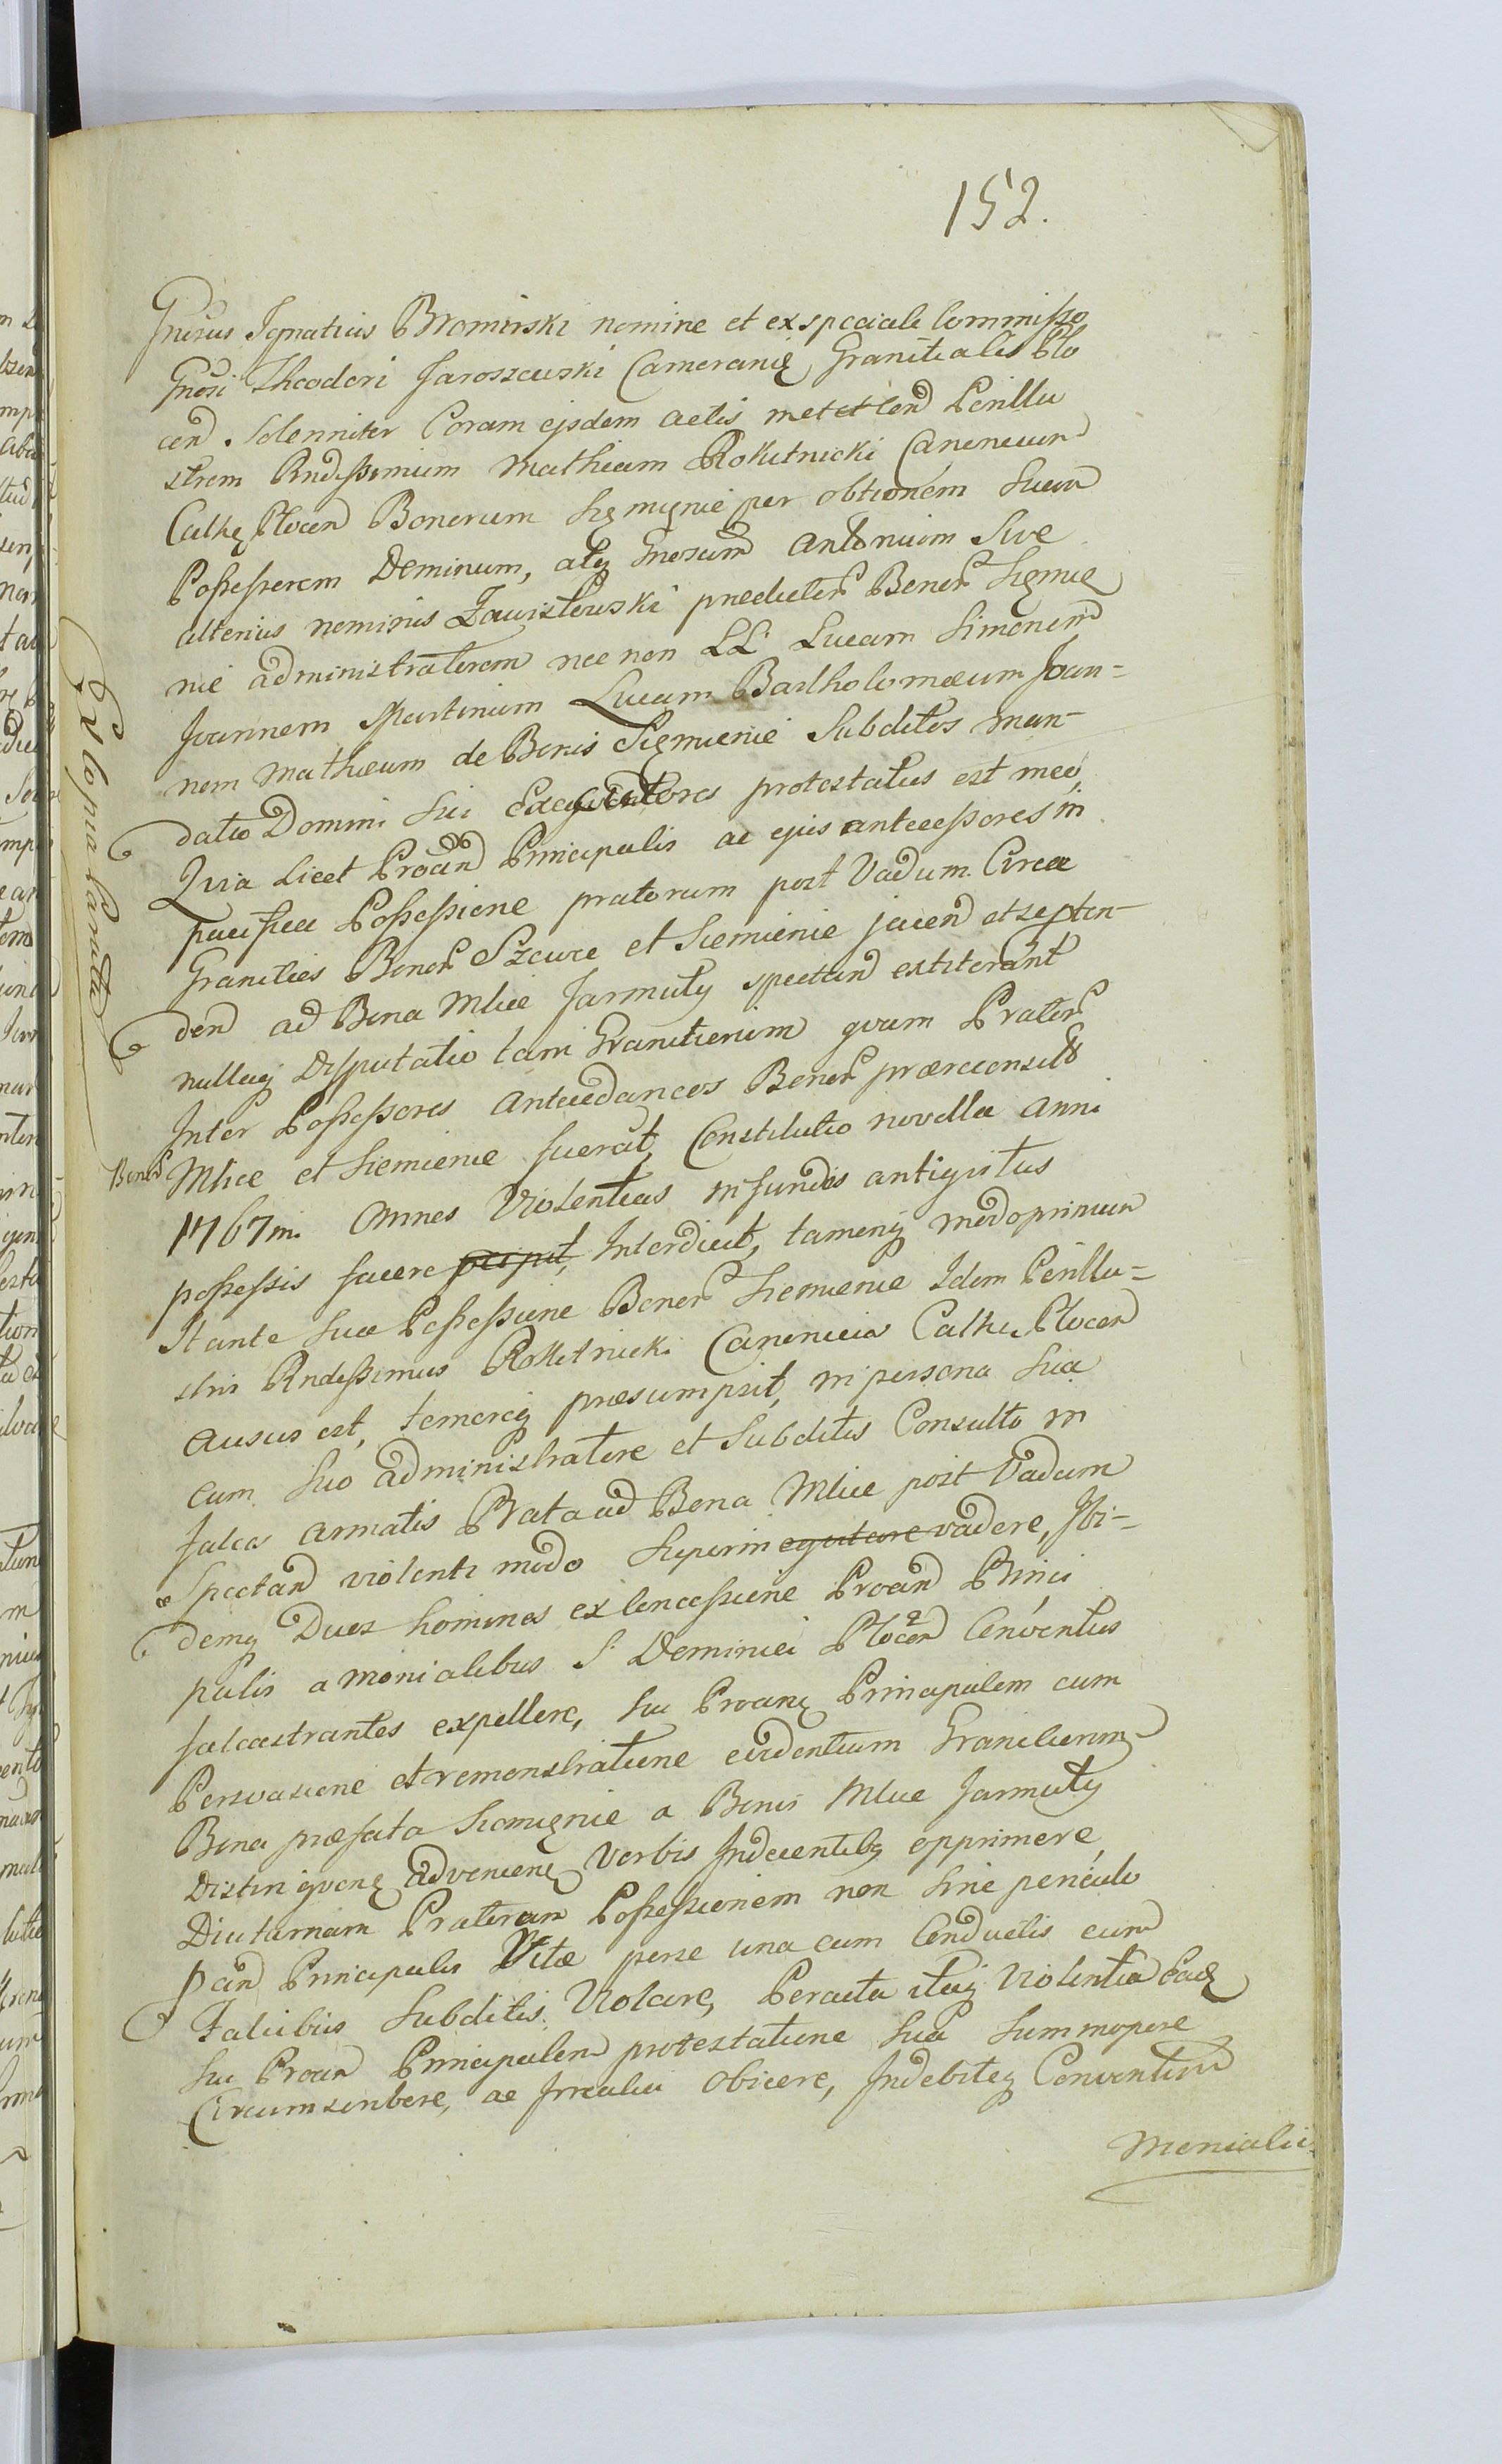 152.
Gnrosus Ignatius Bromirski nomine et ex speciali Commisso
Gnrosi Theodori Jaroszewski Camerarii Granitialis Plo
cen. Solenniter Coram ejsdem actis met et len Perillu
strem Rndissimum Mathiam Rokitnicki Canonicum
Cathę Plocen Bonorum Siemięnie per obtionem Suum
Possessorem Dominum, atq Gnrosum Antonium Sive
alterius nominis Zawistowski praedictor Bonor Siemie
nie administratorem nec non LL Lucam Simonem
Joannem Martinum Lucam Bartholomæum Joan-
nem Mathæum de Bonis Siemienie Subditos man-
dato Domini Sui Exequutores protestatus est meo,
Quia Licet Procan Principalis ac ejus antecessores in
pacifica Possessione pratorum post Vadum Circa
Granities Bonor Szcurze et Siemienie jacen et septen-
den ad Bona Mlice Jarmuty spectan extiterant
nullaq Disputatio tam Granitierum quam Prator
Inter Possessores Antecedaneos Bonor præreconsito
Bonor Mlice et Siemienie fuerat, Constitutio novella Anni
1767mi Omnes Violentias in fundis antiquitus
possessis facere Interdicit, tamenq modo primum
Stante Sua Possessione Bonor Siemienie Idem Perillu-
stris Rndissimus Rokitnicki Canonicus Cathę Plocen
Ausus est, temereq præsumpsit, in persona Sua
cum Suo administratore et Subditis Consulto in
falces armatis Prata ad Bona Mlice post Vadum
Spectan violenti modo Superin equitare vadere, Ibi-
demq Duos homines ex Concessione Procan Princi
palis a Monialibus S Dominici Plocen Conventus
falcastrantes expellere, Su Procanę Principalem cum
Persvasione et remonstratione evidentium Granicierum
Bona præfata Siemięnie a Bonis Mlice Jarmuty
Distingvenę Advenienę Verbis Indecentibq opprimere,
Diuturnam Pratoram Possessionem non Sine periculo
Pcan Principalis Vitæ perse una cum Conductis cum
Falcibus Subditis Violare, Peracta itaq Violentia Eadę
Su Procan Principalem protestatione Sua Summopere
Circumscribere, ac Irrealia Obicere, Indebiteq Conventum
Moniali
Ex Copia Parata